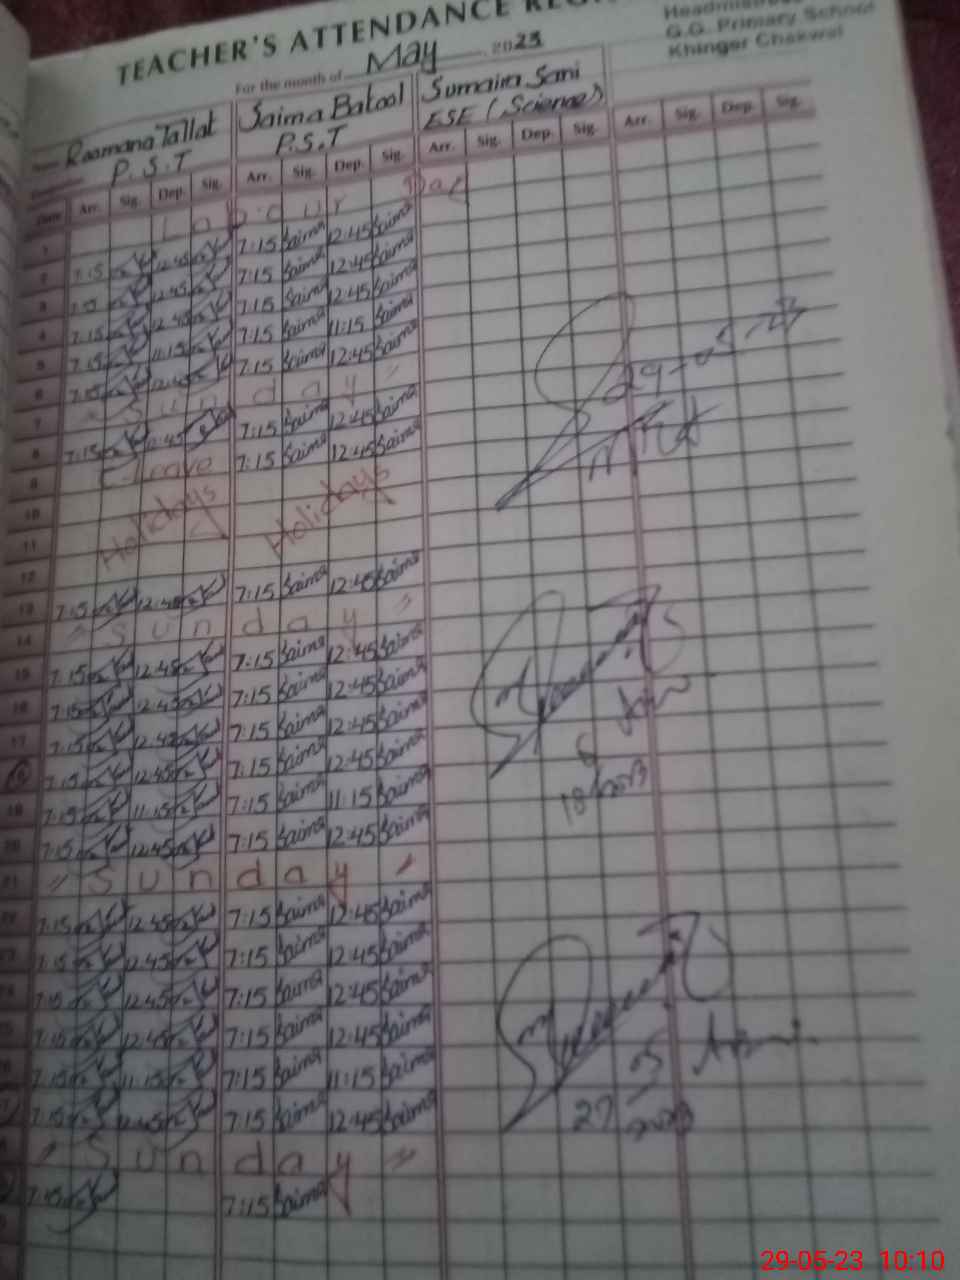 TEACHER'S ATTENDANCE
Headmistress
G.G. Primary School
Khinger Chakwal
For the month of May 2023
Raamana Tallat Saima Batool Sumaira Sani
P.S.T P.S.T ESE (Science)
Date Arr. Sig. Dep. Sig. Arr. Sig. Dep. Sig. Arr. Sig. Dep. Sig. Arr. Sig. Dep. Sig.
1 Labour Day
2 7:15 12:45 7:15 Saima 12:45 Saima
3 7:15 12:45 7:15 Saima 12:45 Saima
4 7:15 12:45 7:15 Saima 12:45 Saima
5 7:15 11:15 7:15 Saima 11:15 Saima
6 7:15 12:45 7:15 Saima 12:45 Saima
7 Sunday
8 7:15 12:45 7:15 Saima 12:45 Saima
9 Leave 7:15 Saima 12:45 Saima
10
11 Holidays Holidays
12
13 7:15 12:45 7:15 Saima 12:45 Saima
14 Sunday
15 7:15 12:45 7:15 Saima 12:45 Saima
16 7:15 12:45 7:15 Saima 12:45 Saima
17 7:15 12:45 7:15 Saima 12:45 Saima
18 7:15 12:45 7:15 Saima 12:45 Saima
19 7:15 11:15 7:15 Saima 11:15 Saima
20 7:15 12:45 7:15 Saima 12:45 Saima
21 Sunday
22 7:15 12:45 7:15 Saima 12:45 Saima
23 7:15 12:45 7:15 Saima 12:45 Saima
24 7:15 12:45 7:15 Saima 12:45 Saima
25 7:15 12:45 7:15 Saima 12:45 Saima
26 7:15 11:15 7:15 Saima 11:15 Saima
27 7:15 12:45 7:15 Saima 12:45 Saima
28 Sunday
7:15 7:15 Saima
29-05-23
27 05 2023
29-05-23 10:10